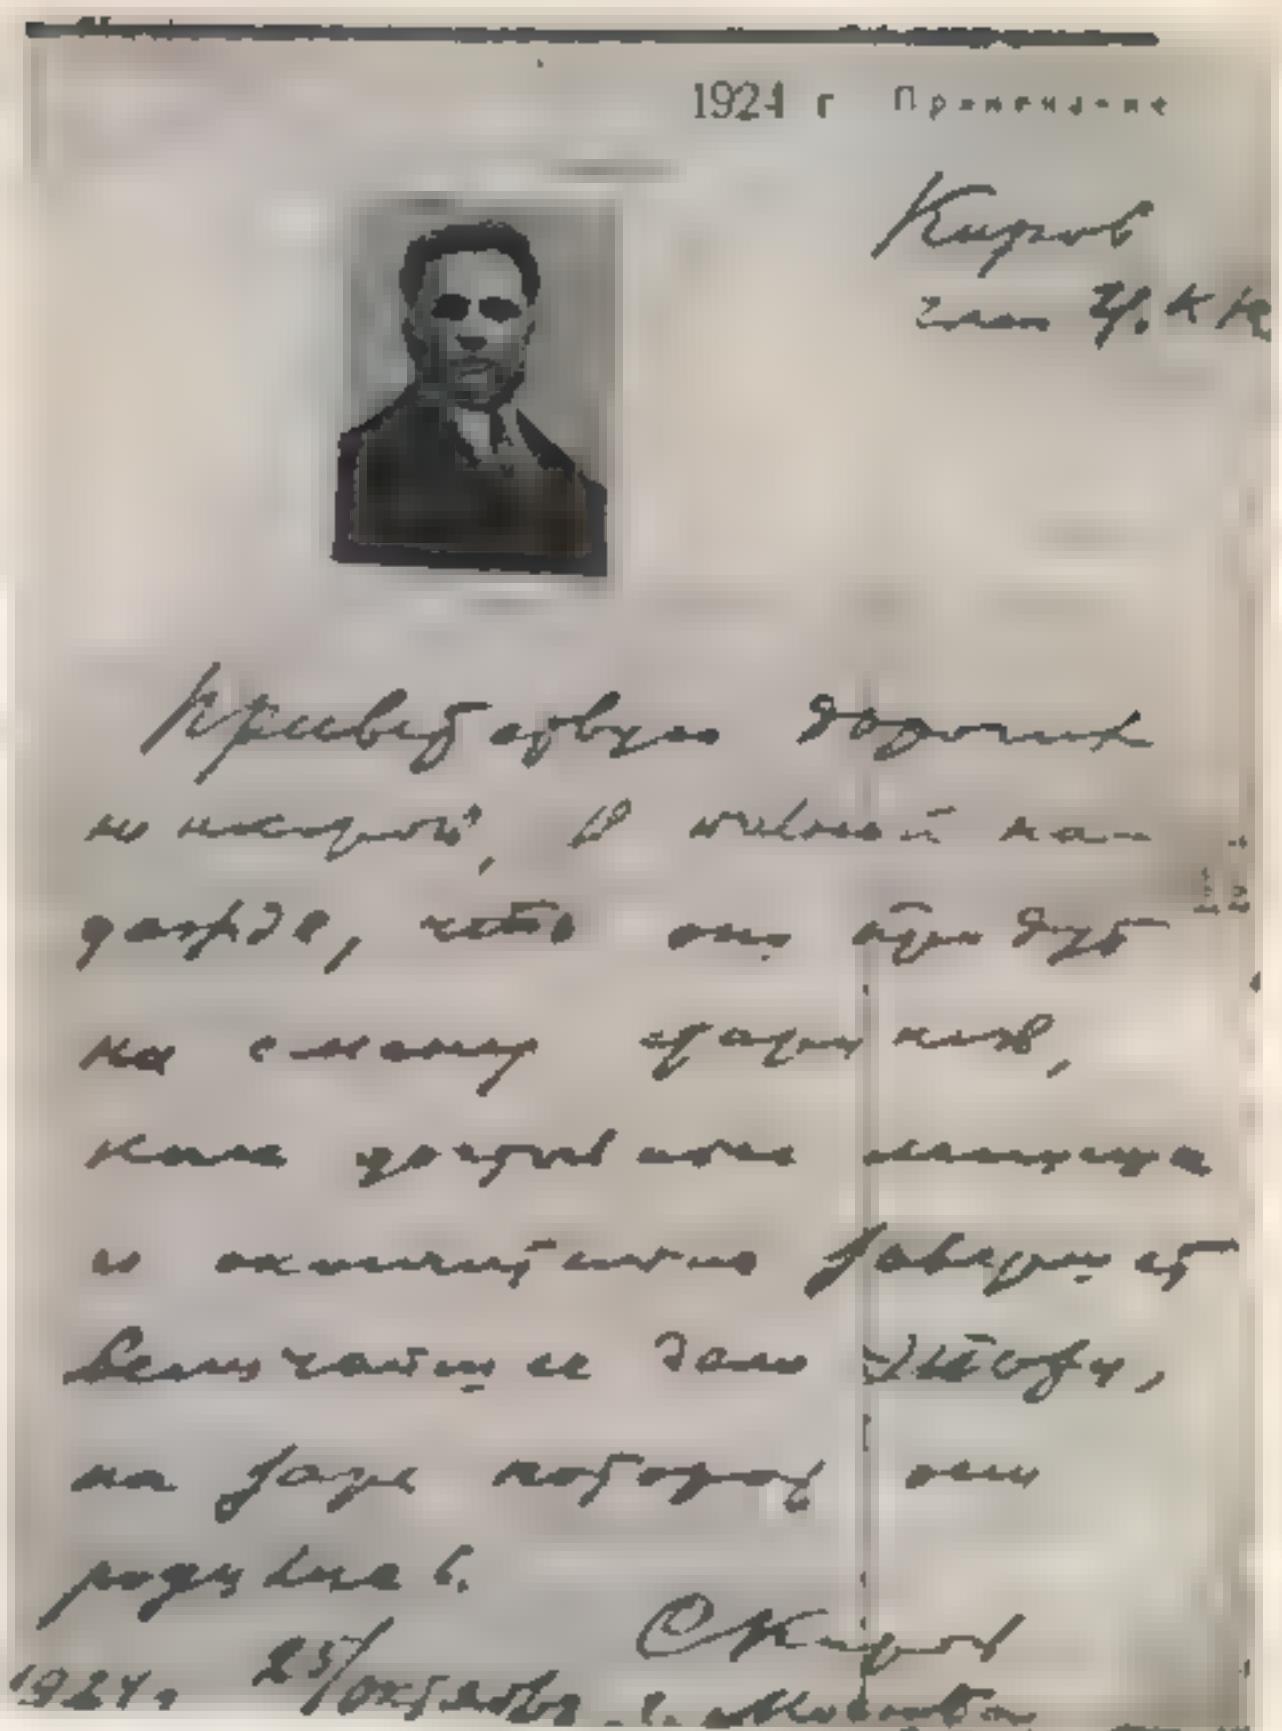 1924 г Примечание
Киров
член Ц. К
Приветствую дорогих
пионеров, в полной на-
дежде, что они придут
на смену старикам,
и окончательно завершат
Величайшее дело эпохи,
на заре которой они
родились.
СКиров
1924 г. 25/октября. г. Москва